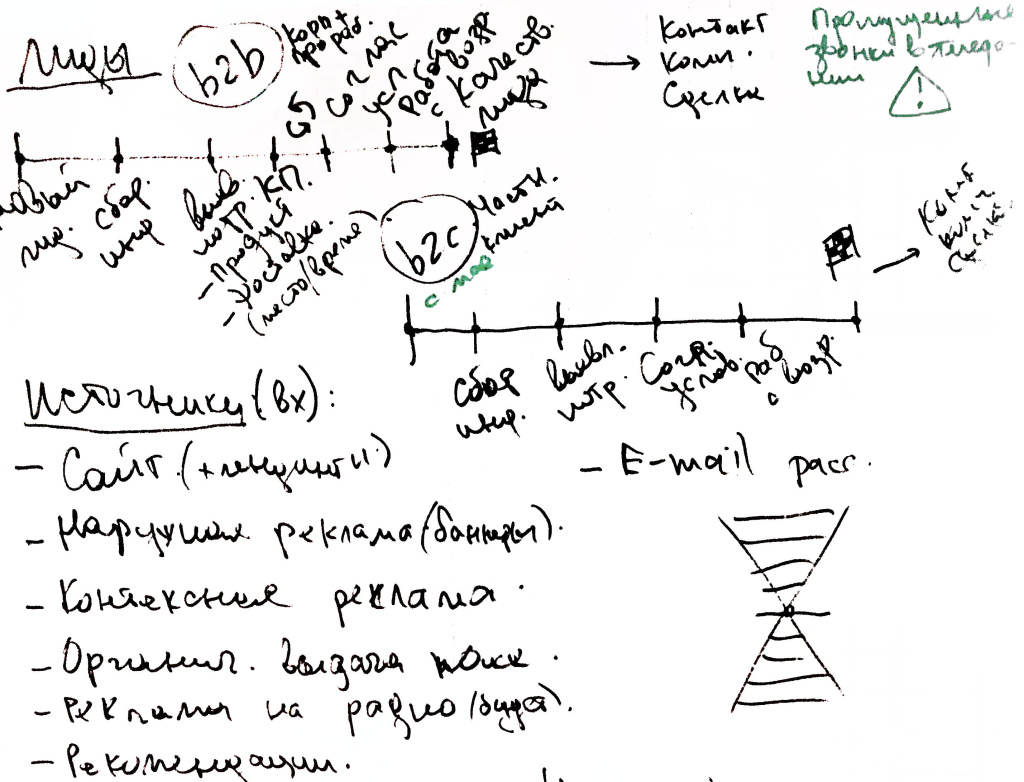 Лиды
b2b
КОРП +
прораб.
соглас
усл
Работа
с возр
Качеств.
лида
Контакт
Комп.
Сделка
Пропущенные
звонки в телефо-
нии
!
Новый
лид.
сбор.
инф
выяв.
потр.
КП.
- Продукт
- Доставка.
(место/время)
b2c
Частн.
клиент
Конт
Сделка
сбор
инф.
выявл.
потр.
Согл.
услов.
раб
с возр.
Источники (вх):
- Сайт. (+лендинги.)
- Наружная реклама (баннеры).
- Контексная реклама.
- Органич. выдача поиск.
- Реклама на радио (будет).
- Рекомендации.
- E-mail расс.